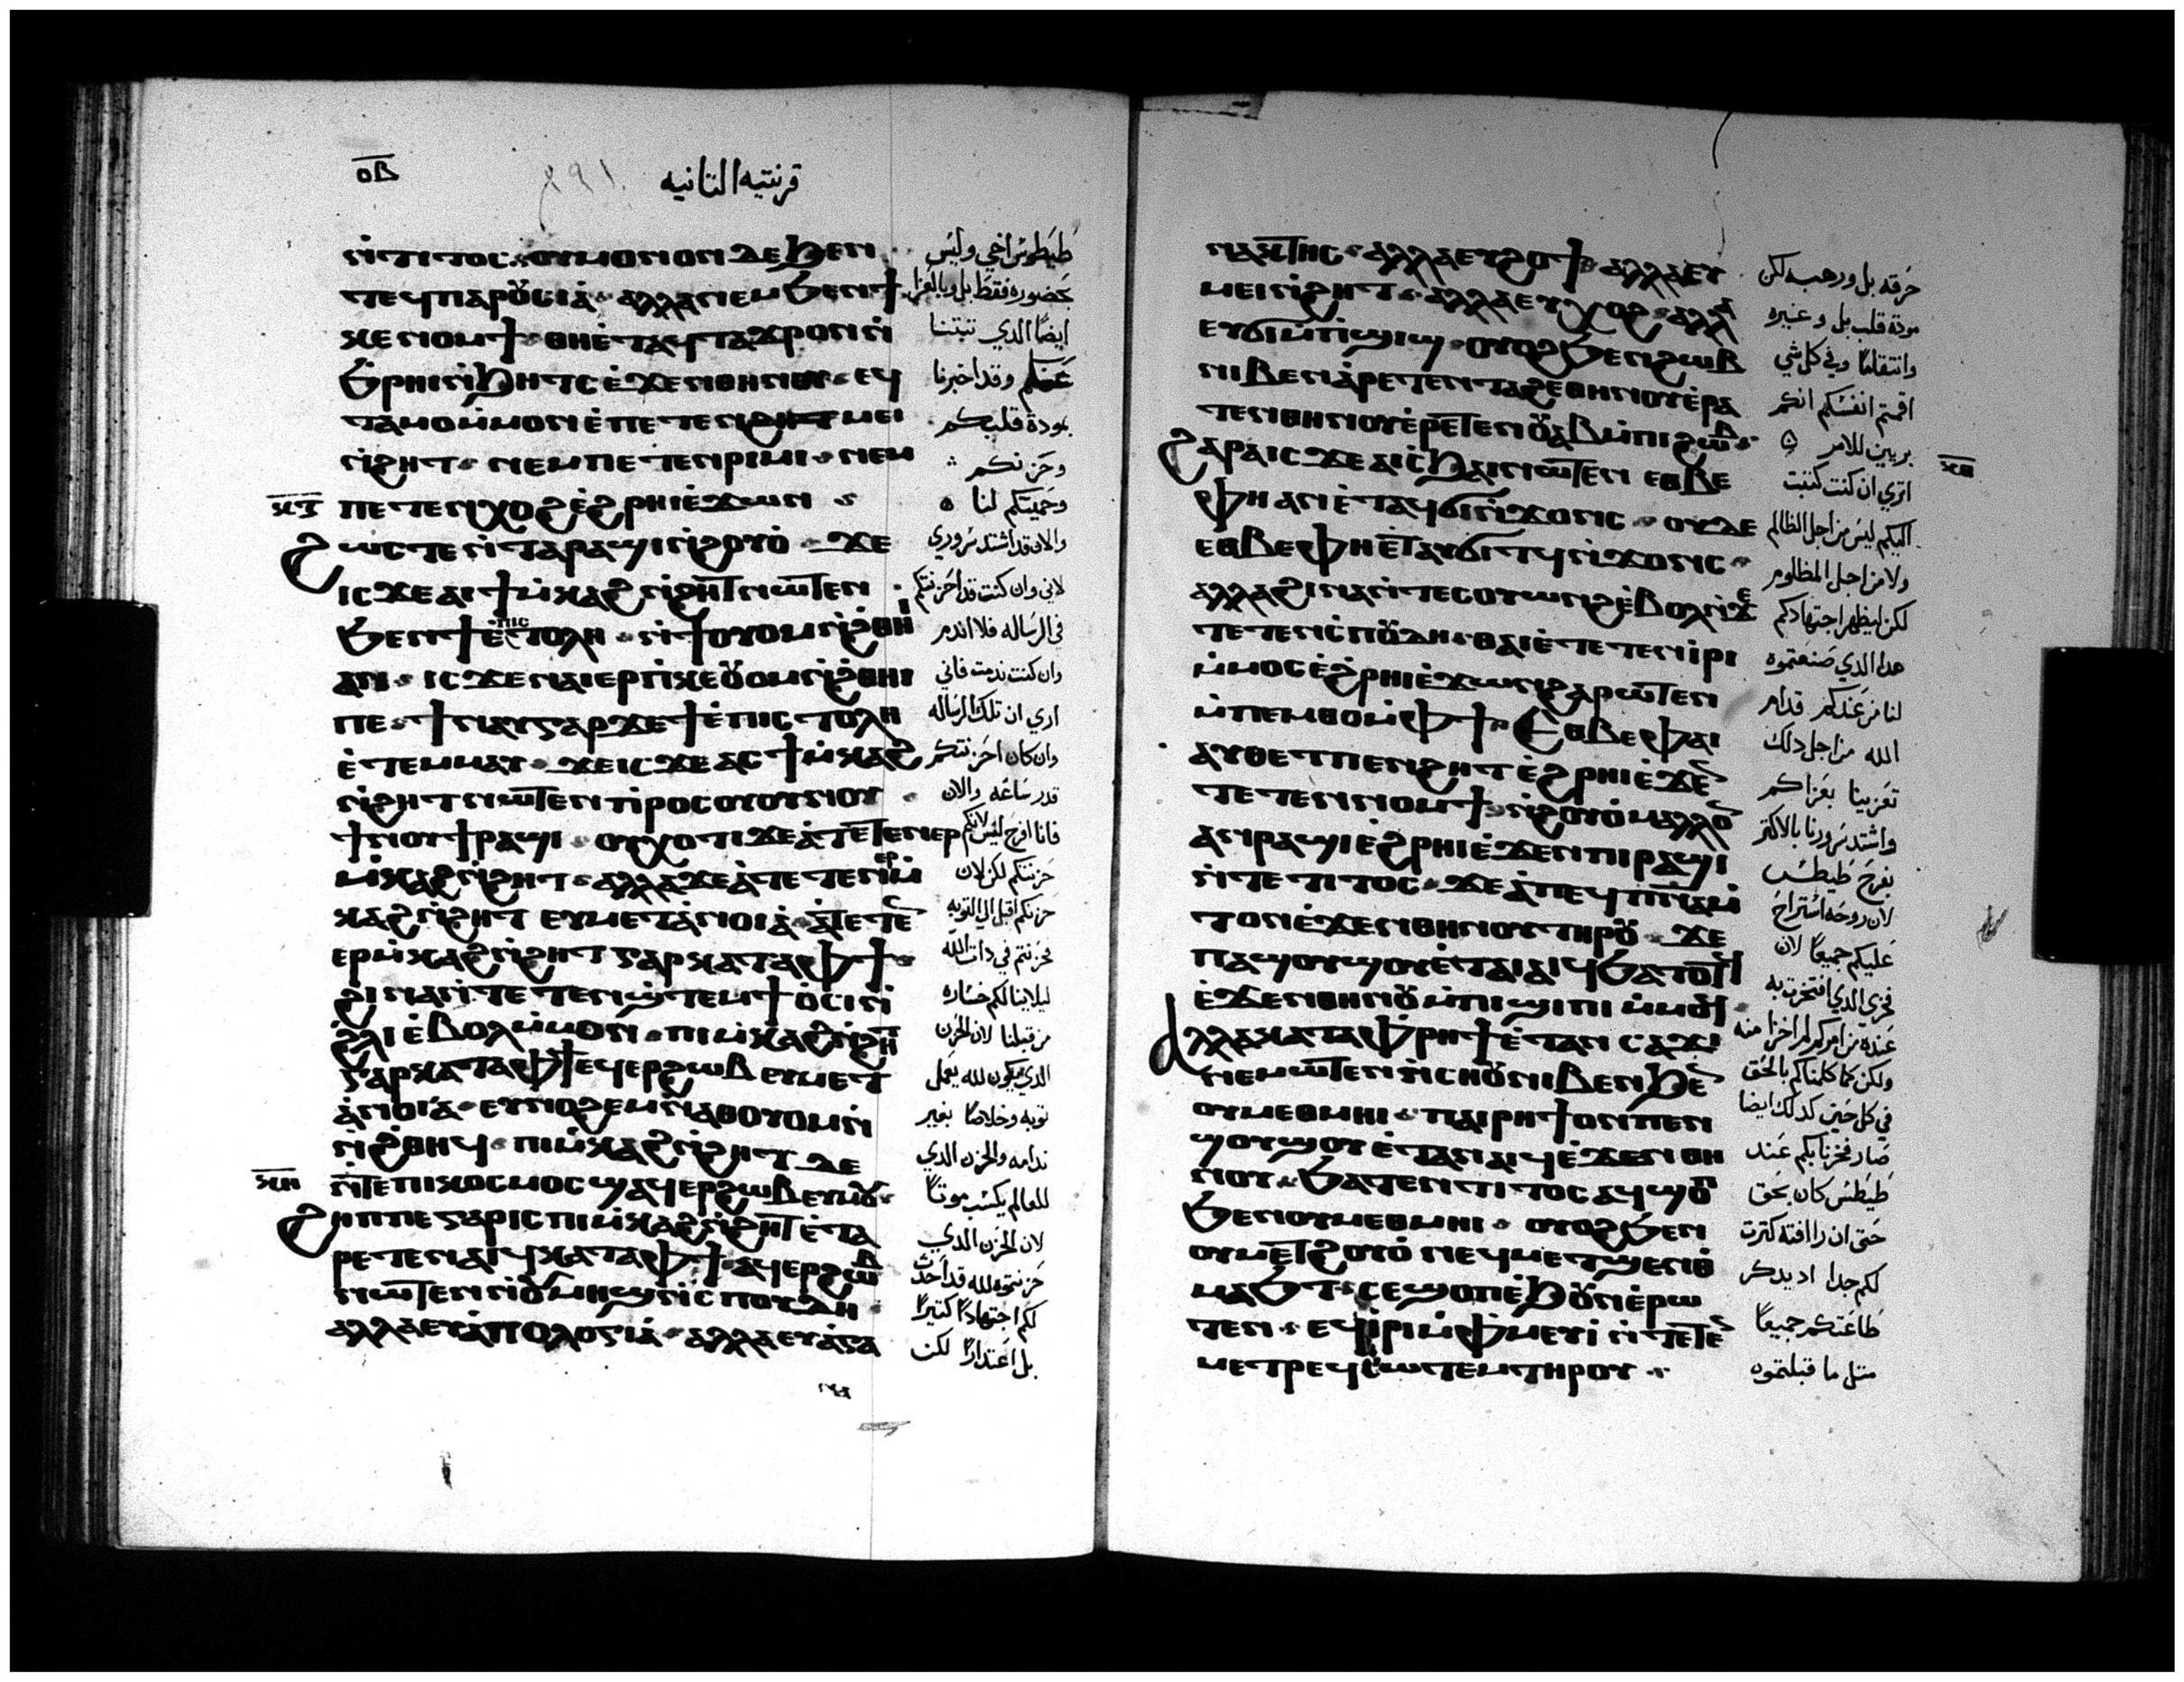 ⲟⲃ
قرنتيه الثانيه
ⲛ̀ⲧⲓⲧⲟⲥ ⲟⲩⲙⲟⲛⲟⲛ ⲇⲉ ϧⲉⲛ
ⲧⲉϥⲡⲁⲣⲟⲩⲥⲓⲁ̀ ⲁⲗⲗⲁ ⲛⲉⲙ ϧⲉⲛ ϯ
ⲕⲉⲛⲟⲙϯ ⲑⲏⲉ̀ⲧⲁϥⲧⲁϫⲣⲟⲛ ⲛ̀
ϧ̀ⲣⲏⲓ ⲛ̀ϧⲏⲧⲥ ⲉ̀ϫⲉⲛ ⲑⲏⲛⲟⲩ ⲉϥ
ⲧⲁⲙⲟ ⲙ̀ⲙⲟⲛ ⲉ̀ⲡⲉⲧⲉⲛϩⲏⲧ ⲙⲉⲓ
ⲛ̀ϩⲏⲧ ⲛⲉⲙ ⲡⲉⲧⲉⲛⲣⲓⲙⲓ ⲛⲉⲙ
ⲡⲉⲧⲉⲛⲭⲟϩ ⲉ̀ϩⲣⲏⲓ ⲉ̀ϫⲱⲛ
ϩⲱⲥⲧⲉ ⲛ̀ⲧⲁⲣⲁϣⲓ ⲛ̀ϩⲟⲩⲟ̀ ϫⲉ
ⲓⲥϫⲉ ⲁⲓϯⲙ̀ⲕⲁϩ ⲛ̀ϩⲏⲧ ⲛⲱⲧⲉⲛ
ϧⲉⲛ ϯⲉ̀ⲡⲓⲥⲧⲟⲗⲏ ⲛ̀ϯⲟⲩⲟⲙ ⲛ̀ϩⲑⲏⲓ
ⲁⲛ ⲓⲥϫⲉ ⲛⲁⲓⲉⲣⲡ̀ⲕⲉⲟⲩⲟⲙ ⲛ̀ϩ̀ⲑⲏⲓ
ⲡⲉ ϯⲛⲁⲩ ⲅⲁⲣ ϫⲉ ϯⲉ̀ⲡⲓⲥⲧⲟⲗⲏ
ⲉ̀ⲧⲉⲙⲙⲁⲩ ϫⲉ ⲓⲥϫⲉ ⲁⲥϯⲙ̀ⲕⲁϩ
ⲛ̀ϩⲏⲧ ⲛⲱⲧⲉⲛ ⲡⲣⲟⲥ ⲟⲩⲟⲩⲛⲟⲩ
ϯⲛⲟⲩ ϯⲣⲁϣⲓ ⲟⲩⲭⲟⲧⲓ ϫⲉ ⲁ̀ⲧⲉⲧⲉⲛⲉⲣ
ⲙ̀ⲕⲁϩ ⲛ̀ϩⲏⲧ ⲁⲗⲗⲁ ϫⲉ ⲁ̀ⲧⲉⲧⲉⲛⲉⲣⲙ̀
ⲕⲁϩ ⲛ̀ϩⲏⲧ ⲉⲩⲙⲉⲧⲁ̀ⲛⲟⲓⲁ̀ ⲁ̀ⲧⲉⲧⲉⲛ
ⲉⲣⲙ̀ⲕⲁϩ ⲛ̀ϩⲏⲧ ⲅⲁⲣ ⲕⲁⲧⲁ ⲫϯ
ϩⲓⲛⲁ ⲛ̀ⲧⲉⲧⲉⲛϣ̀ⲧⲉⲙϯⲟ̀ⲥⲓ ⲛ̀
ϩ̀ⲗⲓ ⲉ̀ⲃⲟⲗ ⲙ̀ⲙⲟⲛ ⲡⲓⲙ̀ⲕⲁϩ ⲛ̀ϩⲏⲧ
ⲅⲁⲣ ⲕⲁⲧⲁ ⲫϯ ⲉϥⲉⲣϩⲱⲃ ⲉⲩⲙⲉⲧ
ⲁ̀ⲛⲟⲓⲁ̀ ⲉⲩⲛⲟϩⲉⲙ ⲛ̀ⲁⲑⲟⲩⲟⲙ ⲛ̀
ⲛ̀ϩ̀ⲑⲏϥ ⲡⲓⲙ̀ⲕⲁϩ ⲛ̀ϩⲏⲧ ⲇⲉ
ⲛ̀ⲧⲉ ⲡⲓⲕⲟⲥⲙⲟⲥ ϣⲁϥⲉⲣϩⲱⲃ ⲉⲡⲙⲟⲩ
ϩⲏⲡⲡⲉ ⲅⲁⲣ ⲓⲥ ⲡⲓⲙ̀ⲕⲁϩ ⲛ̀ϩⲏⲧ ⲉ̀ⲧⲁ
ⲣⲉⲧⲉⲛⲁⲓϥ ⲕⲁⲧⲁ ⲫϯ ⲁϥⲉⲣϩⲱⲃ
ⲛⲱⲧⲉⲛ ⲛ̀ⲟⲩⲙⲏϣ ⲛ̀ⲥⲡⲟⲩⲇⲏ
ⲁⲗⲗⲁ ⲉⲩⲁ̀ⲡⲟⲗⲟⲅⲓⲁ̀ ⲁⲗⲗⲁ ⲉⲩⲁ̀ⲅⲁ
طيطوس اخي وليس
بحضوره فقط بل وبالعزا
ايضا الذي تثبتنا
عندكم وقد اخبرنا
بمودة قلبكم
وحزنكم
وحميتكم لنا
والان قد اشتد سروري
لاني وان كنت قد احزنتكم
في الرساله فلا اندم
وان كنت ندمت فاني
اري ان تلك الرساله
وان كان احزنتكم
قدر ساعه والان
فانا افرح ليس لانكم
حزنتكم لكن لان
حزنكم اقبل الي التوبه
بحزنتم في ذات الله
ليلا ينالكم خساره
من قبلنا لان الحزن
الذي يكون لله يعمل
توبه وخلاصا بغير
ندامه والحزن الذي
للعالم يكسب موتا
لان الحزن الذي
حزنتموه لله قد احدث
لكم اجتهادا كثيرا
بل اعتدارا لكن
ⲛⲁⲕⲧⲏⲥ ⲁⲗⲗⲁ ⲉⲩϩⲟϯ ⲁⲗⲗⲁ ⲉⲩ
ⲙⲉⲓ ⲛ̀ϩⲏⲧ ⲁⲗⲗⲁ ⲉⲩⲭⲟϩ ⲁⲗⲗⲁ
ⲉⲩϭⲓⲙ̀ⲡ̀ϣⲓϣ ⲟⲩⲟϩ ϧⲉⲛ ϩⲱⲃ
ⲛⲓⲃⲉⲛ ⲁ̀ⲣⲉⲧⲉⲛⲧⲁϩⲉ ⲑⲏⲛⲟⲩ ⲉ̀ⲣⲁ
ⲧⲉⲛ ⲑⲏⲛⲟⲩ ⲉ̀ⲣⲉⲧⲉⲛⲟⲩⲁⲃ ⲙ̀ⲡⲓϩⲱⲃ
ϩⲁⲣⲁ ⲓⲥϫⲉ ⲁⲓⲥ̀ϧⲁⲓ ⲛⲱⲧⲉⲛ ⲉⲑⲃⲉ
ⲫⲏ ⲁⲛ ⲉ̀ⲧⲁϥϭⲓⲛ̀ϫⲟⲛⲥ ⲟⲩⲇⲉ
ⲉⲑⲃⲉ ⲫⲏ ⲉ̀ⲧⲁⲩϭⲓⲧϥ ⲛ̀ϫⲟⲛⲥ
ⲁⲗⲗⲁ ϩⲓⲛⲁ ⲛ̀ⲧⲉⲥⲟⲩⲱⲛϩ ⲉ̀ⲃⲟⲗ ⲛ̀ϫⲉ
ⲧⲉⲧⲉⲛⲥ̀ⲡⲟⲩⲇⲏ ⲑⲁⲓ ⲉ̀ⲧⲉⲧⲉⲛⲓ̀ⲣⲓ
ⲙ̀ⲙⲟⲥ ⲉ̀ϩⲣⲏⲓ ⲉ̀ϫⲱⲛ ϩⲁⲣⲱⲧⲉⲛ
ⲙ̀ⲡⲉⲙⲑⲟ ⲙ̀ⲫϯ ⲉⲑⲃⲉ ⲫⲁⲓ
ⲁⲩⲑⲉⲧ ⲡⲉⲛϩⲏⲧ ⲉ̀ϩⲣⲏⲓ ⲉ̀ϫⲉⲛ
ⲧⲉⲧⲉⲛⲛⲟⲙϯ ⲛ̀ϩⲟⲩⲟ̀ ⲙⲁⲗⲗⲟⲛ
ⲁⲛⲣⲁϣⲓ ⲉ̀ϩⲣⲏⲓ ⲉ̀ϫⲉⲛ ⲡⲓⲣⲁϣⲓ
ⲛ̀ⲧⲉ ⲧⲓⲧⲟⲥ ϫⲉ ⲁ̀ⲡⲉϥⲡⲛⲁ ⲙ̀
ⲧⲟⲛ ⲉ̀ϫⲉⲛ ⲑⲏⲛⲟⲩ ⲧⲏⲣⲟⲩ ϫⲉ
ⲡⲁϣⲟⲩϣⲟⲩ ⲉ̀ⲧⲁⲓⲁⲓϥ ϧⲁⲧⲟⲧϥ
ⲉ̀ϫⲉⲛ ⲑⲏⲛⲟⲩ ⲙ̀ⲡⲓϣⲓⲡⲓ ⲙ̀ⲙⲟϥ
ⲁⲗⲗⲁ ⲕⲁⲧⲁ ⲫⲣⲏϯ ⲉ̀ⲧⲁⲛⲥⲁϫⲓ
ⲛⲉⲙⲱⲧⲉⲛ ⲛ̀ⲥⲏⲟⲩ ⲛⲓⲃⲉⲛ ϧⲉⲛ
ⲟⲩⲙⲉⲑⲙⲏⲓ ⲡⲁⲓⲣⲏϯ ⲟⲛ ⲡⲉⲛ
ϣⲟⲩϣⲟⲩ ⲉ̀ⲧⲁⲛⲁⲓϥ ⲉ̀ϫⲉⲛ ⲑⲏ
ⲛⲟⲩ ϧⲁⲧⲉⲛ ⲧⲓⲧⲟⲥ ⲁϥϣⲱⲡⲓ
ϧⲉⲛ ⲟⲩⲙⲉⲑⲙⲏⲓ ⲟⲩⲟϩ ϧⲉⲛ
ⲟⲩⲙⲉⲧϩⲟⲩⲟ̀ ⲛⲉϥⲙⲉⲧϣⲉⲛϩ̀
ⲙⲁϧⲧ ⲥⲉϣⲟⲡ ⲉ̀ϧⲟⲩⲛ ⲉ̀ⲣⲱ
ⲧⲉⲛ ⲉϥⲓ̀ⲣⲓ ⲙ̀ⲫ̀ⲙⲉⲩⲓ̀ ⲛ̀ⲧⲉⲧⲉⲛ
ⲙⲉⲧⲣⲉϥⲥⲱⲧⲉⲙ ⲧⲏⲣⲟⲩ
حرقه بل ورهبه لكن
مودة قلب بل وغيره
وانتقاما وفي كل شي
اقمتم انفسكم انكم
بريين للامر
اتري ان كنت كتبت
اليكم ليس من اجل الظالم
ولا من اجل المظلوم
لكن ليظهر اجتهادكم
هدا الذي صنعتموه
لنا من عندكم قدام
الله من اجل دلك
تعزينا بعزاكم
واشتد سرورنا بالاكثر
بفرح طيطس
لان روحه استراح
عليكم جميعا لان
فخري الذي افتخرت به
عنده من امركم لم اخزا منه
ولكن كما كلمناكم بالحق
في كل حين كدلك ايضا
صار فخرنا بكم عند
طيطس كان بحق
حتي ان راافته كثرت
لكم جدا اد يدكر
طاعتكم جميعا
مثل ما قبلتموه